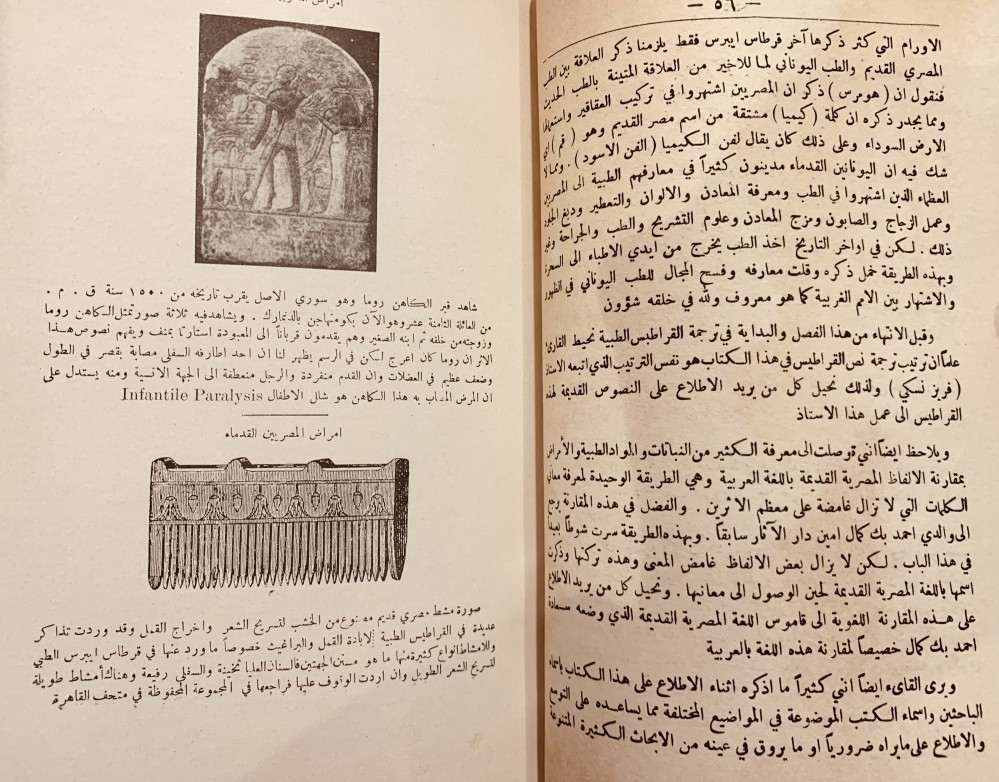 — ٥٦ —
الاورام التي كثر ذكرها آخر قرطاس ايبرس فقط يلزمنا ذكر العلاقة بين الطب
المصري القديم والطب اليوناني لما للاخير من العلاقة المتينة بالطب الحديث
فنقول ان (هومرس) ذكر ان المصريين اشتهروا في تركيب العقاقير واستعمالها
ومما يجدر ذكره ان كلمة (كيميا) مشتقة من اسم مصر القديم وهو (قم) اي
الارض السوداء وعلى ذلك كان يقال لفن الكيميا (الفن الاسود). ومما لا
شك فيه ان اليونانين القدماء مدينون كثيراً في معارفهم الطبية الى المصريين
العظماء الذين اشتهروا في الطب ومعرفة المعادن والالوان والتعطير ودبغ الجلود
وعمل الزجاج والصابون ومزج المعادن وعلوم التشريح والطب والجراحة وغير
ذلك. لكن في اواخر التاريخ اخذ الطب يخرج من ايدي الاطباء الى السحرة
وبهذه الطريقة خمل ذكره وقلت معارفه وفسح المجال للطب اليوناني في الظهور
والاشتهار بين الامم الغربية كما هو معروف ولله في خلقه شؤون
وقبل الانتهاء من هذا الفصل والبداية في ترجمة القراطيس الطبية نحيط القارئ
علماً ان ترتيب ترجمة نص القراطيس في هذا الكتاب هو نفس الترتيب الذي اتبعه الاستاذ
(فريز نسكي) ولذلك نحيل كل من يريد الاطلاع على النصوص القديمة لهذه
القراطيس الى عمل هذا الاستاذ
ويلاحظ ايضاً انني توصلت الى معرفة الكثير من النباتات والمواد الطبية والأمراض
بمقارنة الالفاظ المصرية القديمة باللغة العربية وهي الطريقة الوحيدة لمعرفة معاني
الكلمات التي لا تزال غامضة على معظم الاثرين. والفضل في هذه المقارنة يرجع
الى والدي احمد بك كمال امين دار الآثار سابقاً. وبهذه الطريقة سرت شوطاً بعيداً
في هذا الباب. لكن لا يزال بعض الالفاظ غامض المعنى وهذه تركتها وذكرت
اسمها باللغة المصرية القديمة لحين الوصول الى معانيها. ونحيل كل من يريد الاطلاع
على هذه المقارنة اللغوية الى قاموس اللغة المصرية القديمة الذي وضعه سعادة
احمد بك كمال خصيصاً لمقارنة هذه اللغة بالعربية
ويرى القاىء ايضاً انني كثيراً ما اذكره اثناء الاطلاع على هذا الكتاب باسماء
الباحثين واسماء الكتب الموضوعة في المواضيع المختلفة مما يساعده على التوسع
والاطلاع على مايراه ضرورياً او ما يروق في عينه من الابحاث الكثيرة المتنوعة
شاهد قبر الكاهن روما وهو سوري الاصل يقرب تاريخه من ١٥٠٠ سنة ق. م.
من العائلة الثامنة عشر وهو الآن بكوبنهاجن بالدنمارك. ويشاهد فيه ثلاثة صور تمثل الكاهن روما
وزوجته من خلفه ثم ابنه الصغير وهم يقدمون قرباناً الى المعبودة استارتا بمنف ويفهم أنصوص هذا
الاثر ان روما كان اعرج لكن في الرسم يظهر لنا ان احد اطارفه السفلى مصابة بقصر في الطول
وضعف عظيم في العضلات وان القدم منفردة والرجل منعطفة الى الجهة الانسية ومنه يستدل على
ان المرض المصاب به هذا الكاهن هو شلل الاطفال Infantile Paralysis
امراض المصريين القدماء
صورة مشط مصري قديم مصنوع من الخشب لتسريح الشعر واخراج القمل وقد وردت تذاكر
عديدة في القراطيس الطبية لابادة القمل والبراغيث خصوصاً ما ورد عنها في قرطاس ايبرس الطبي
وللامشاط انواع كثيرة منها ما هو مسنن الجهتين فالسنان العليا ثخينة والسفلى رفيعة وهناك أمشاط طويلة
لتسريح الشعر الطويل وان اردت الوقوف عليها فراجعها في المجموعة المحفوظة في متحف القاهرة